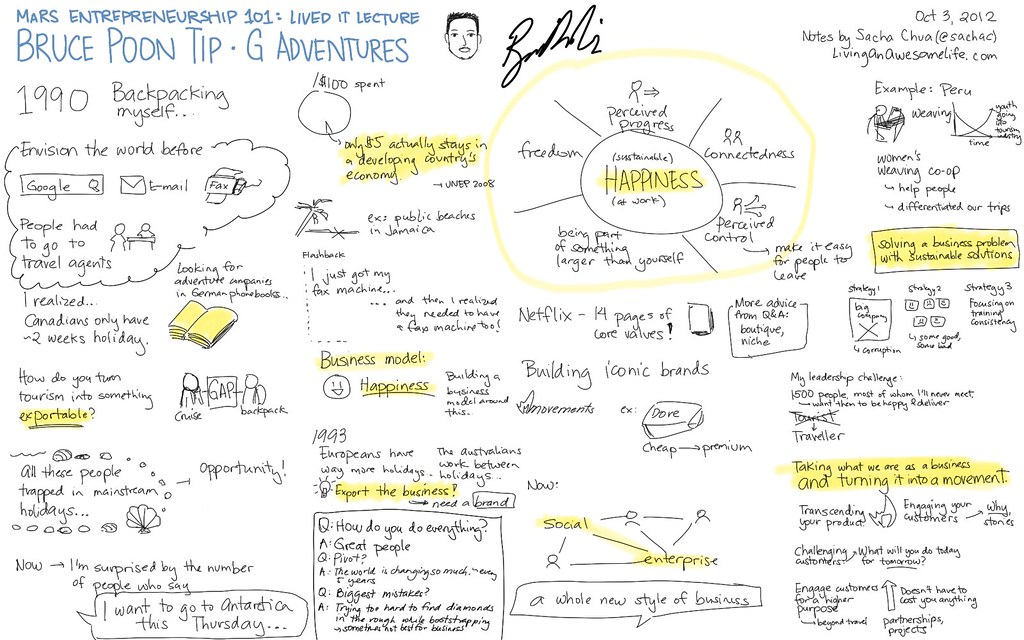 MARS ENTREPRENEURSHIP 101: LIVED IT LECTURE
BRUCE POON TIP · G ADVENTURES
Oct 3, 2012
Notes by Sacha Chua (@sachac)
LivingAnAwesomeLife.com
1990 Backpacking
myself...
Envision the world before
Google
E-mail
Fax
People had
to go to
travel agents
Looking for
adventure companies
in German phonebooks...
I realized...
Canadians only have
~2 weeks holiday.
How do you turn
tourism into something
exportable?
GAP
cruise
backpack
All these people
trapped in mainstream
holidays...
→ Opportunity!
Now → I'm surprised by the number
of people who say
I want to go to Antarctica
this Thursday...
$100 spent
only $5 actually stays in
a developing country's
economy.
→ UNEP 2008
ex: public beaches
in Jamaica
Flashback
I just got my
fax machine...
... and then I realized
they needed to have
a fax machine too!
Business model:
Happiness
Building a
business
model around
this...
1993
Europeans have
way more holidays...
The australians
work between
holidays...
Export the business!
→ need a brand
Q: How do you do everything?
A: Great people
Q: Pivot?
A: The world is changing so much... every
5 years
Q: Biggest mistake?
A: Trying too hard to find diamonds
in the rough while bootstrapping
→ sometimes not best for business
perceived
progress
freedom
connectedness
(sustainable)
HAPPINESS
(at work)
perceived
control
being part
of something
larger than yourself
→ make it easy
for people to
leave
Netflix - 14 pages of
core values!
More advice
from Q&A:
boutique,
niche
Building iconic brands
movements
ex:
Dove
Cheap → premium
Now:
Social
enterprise
a whole new style of business
Example: Peru
weaving
youth
going
into
tourism
industry
time
women's
weaving co-op
↳ help people
↳ differentiated our trips
solving a business problem
with sustainable solutions
strategy 1
big
company
↳ corruption
strategy 2
↳ some good,
some bad
strategy 3
Focusing on
training
consistency
My leadership challenge:
1500 people, most of whom I'll never meet,
↳ want them to be happy & deliver
Tourist
↓
Traveller
Taking what we are as a business
and turning it into a movement.
Transcending
your product
Engaging your
customers
→ Why,
stories
Challenging
customers
→ What will you do today
for tomorrow?
Engage customers
for a higher
purpose
↳ beyond travel
Doesn't have to
cost you anything
partnerships,
projects